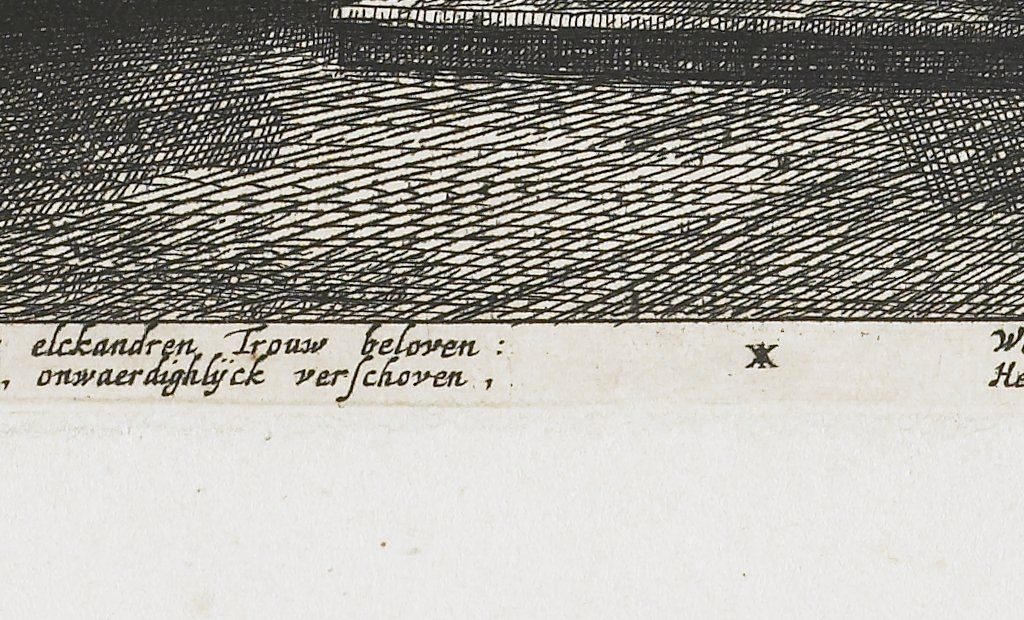 elckandren Trouw beloven : We
, onwaerdighlÿck verſchoven , He